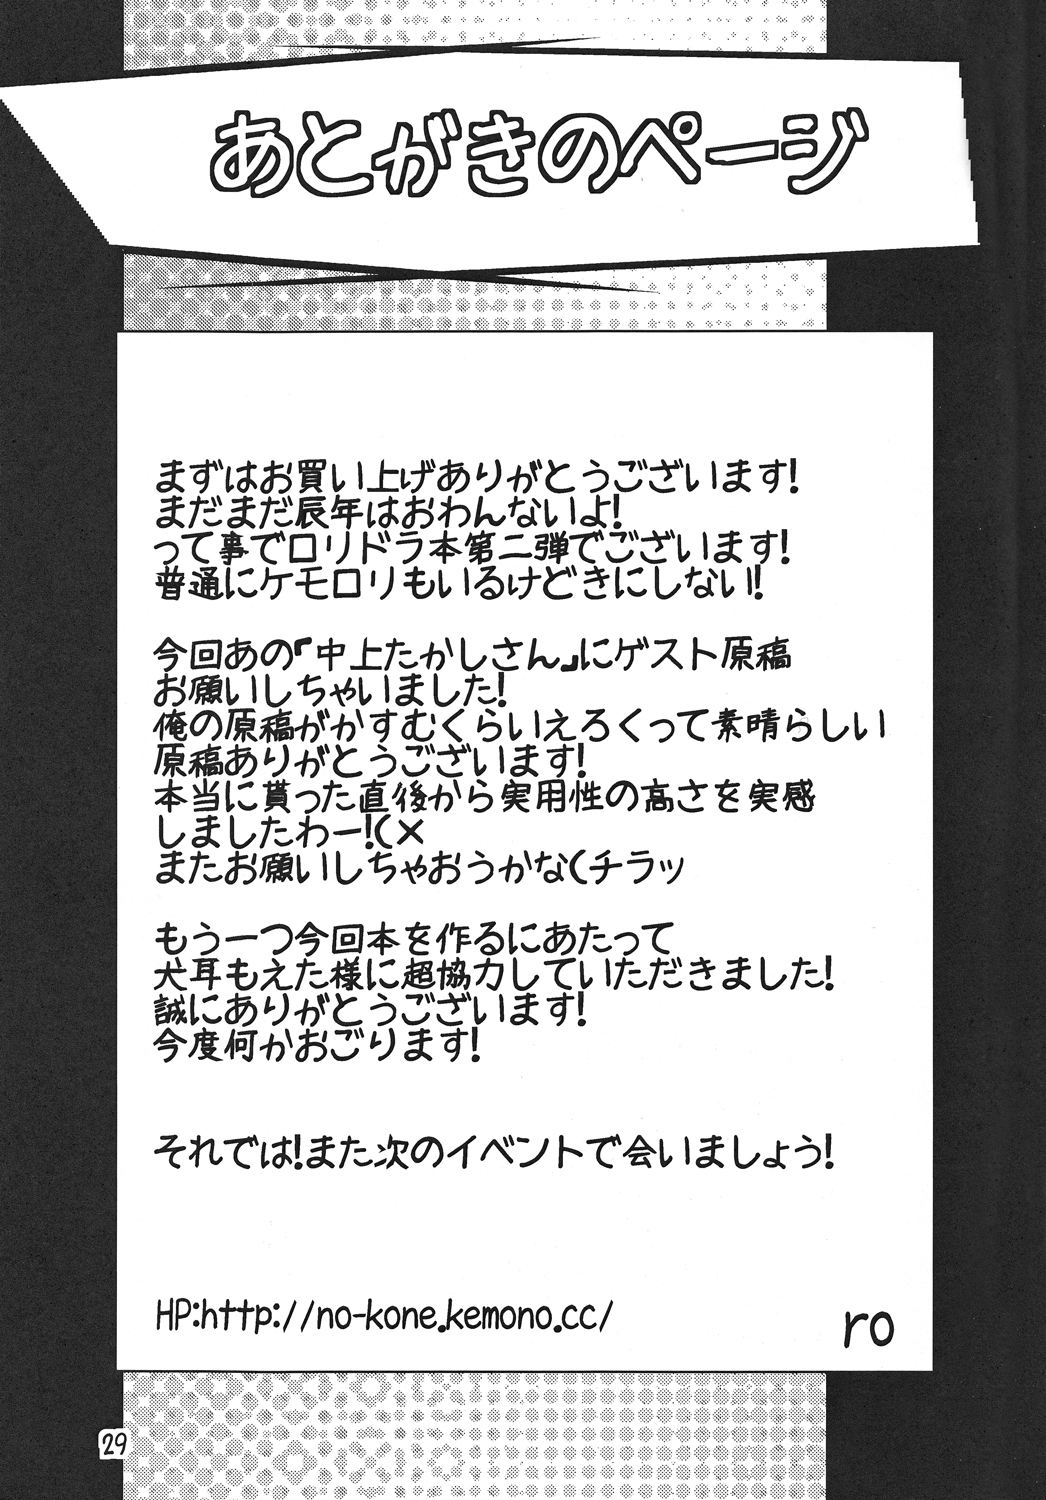 あとがきのページ
まずはお買い上げありがとうございます!
まだまだ辰年はおわんないよ!
って事でロリドラ本第二弾でございます!
普通にケモロリもいるけどきにしない!
今回あの『中上たかしさん』にゲスト原稿
お願いしちゃいました!
俺の原稿がかすむくらいえろくって素晴らしい
原稿ありがとうございます!
本当に貰った直後から実用性の高さを実感
しましたわー!(×
またお願いしちゃおうかな(チラッ
もう一つ今回本を作るにあたって
犬耳もえた様に超協力していただきました!
誠にありがとうございます!
今度何かおごります!
それでは!また次のイベントで会いましょう!
HP:http://no-kone.kemono.cc/
ro
29